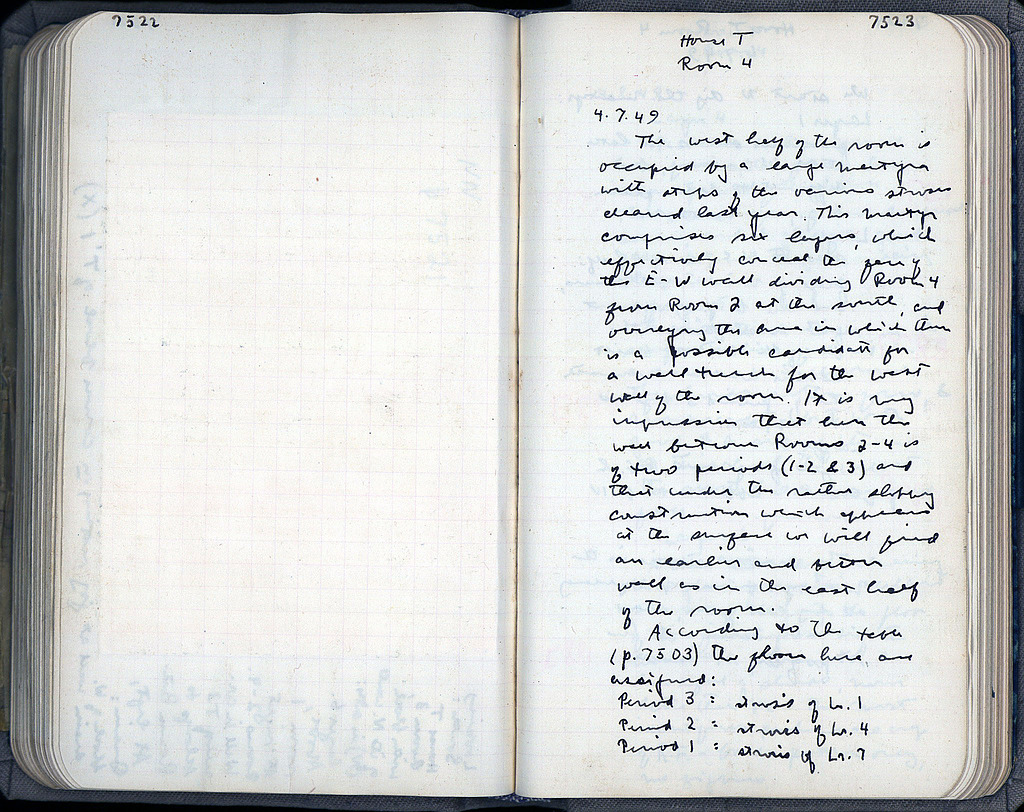 7522
7523
House T
Room 4
4.7.49
The west half of the room is
occupied by a large martyra
with strips of the various stroses
cleared last year. This martyr
comprises six layers, which
effectively conceal the face of
the E-W wall dividing Room 4
from Room 2 at the south, and
overlying the area in which there
is a possible candidate for
a wall trench for the west
wall of the room. It is my
impression that here the
wall between Rooms 2-4 is
of two periods (1-2 & 3) and
that under the rather sloppy
construction which appears
at the surface we will find
an earlier and better
wall as in the east half
of the room.
According to the table
(p. 7503) the floors here are
assigned:
Period 3 : strosis of Lr. 1
Period 2 : strosis of Lr. 4
Period 1 : strosis of Lr. 7